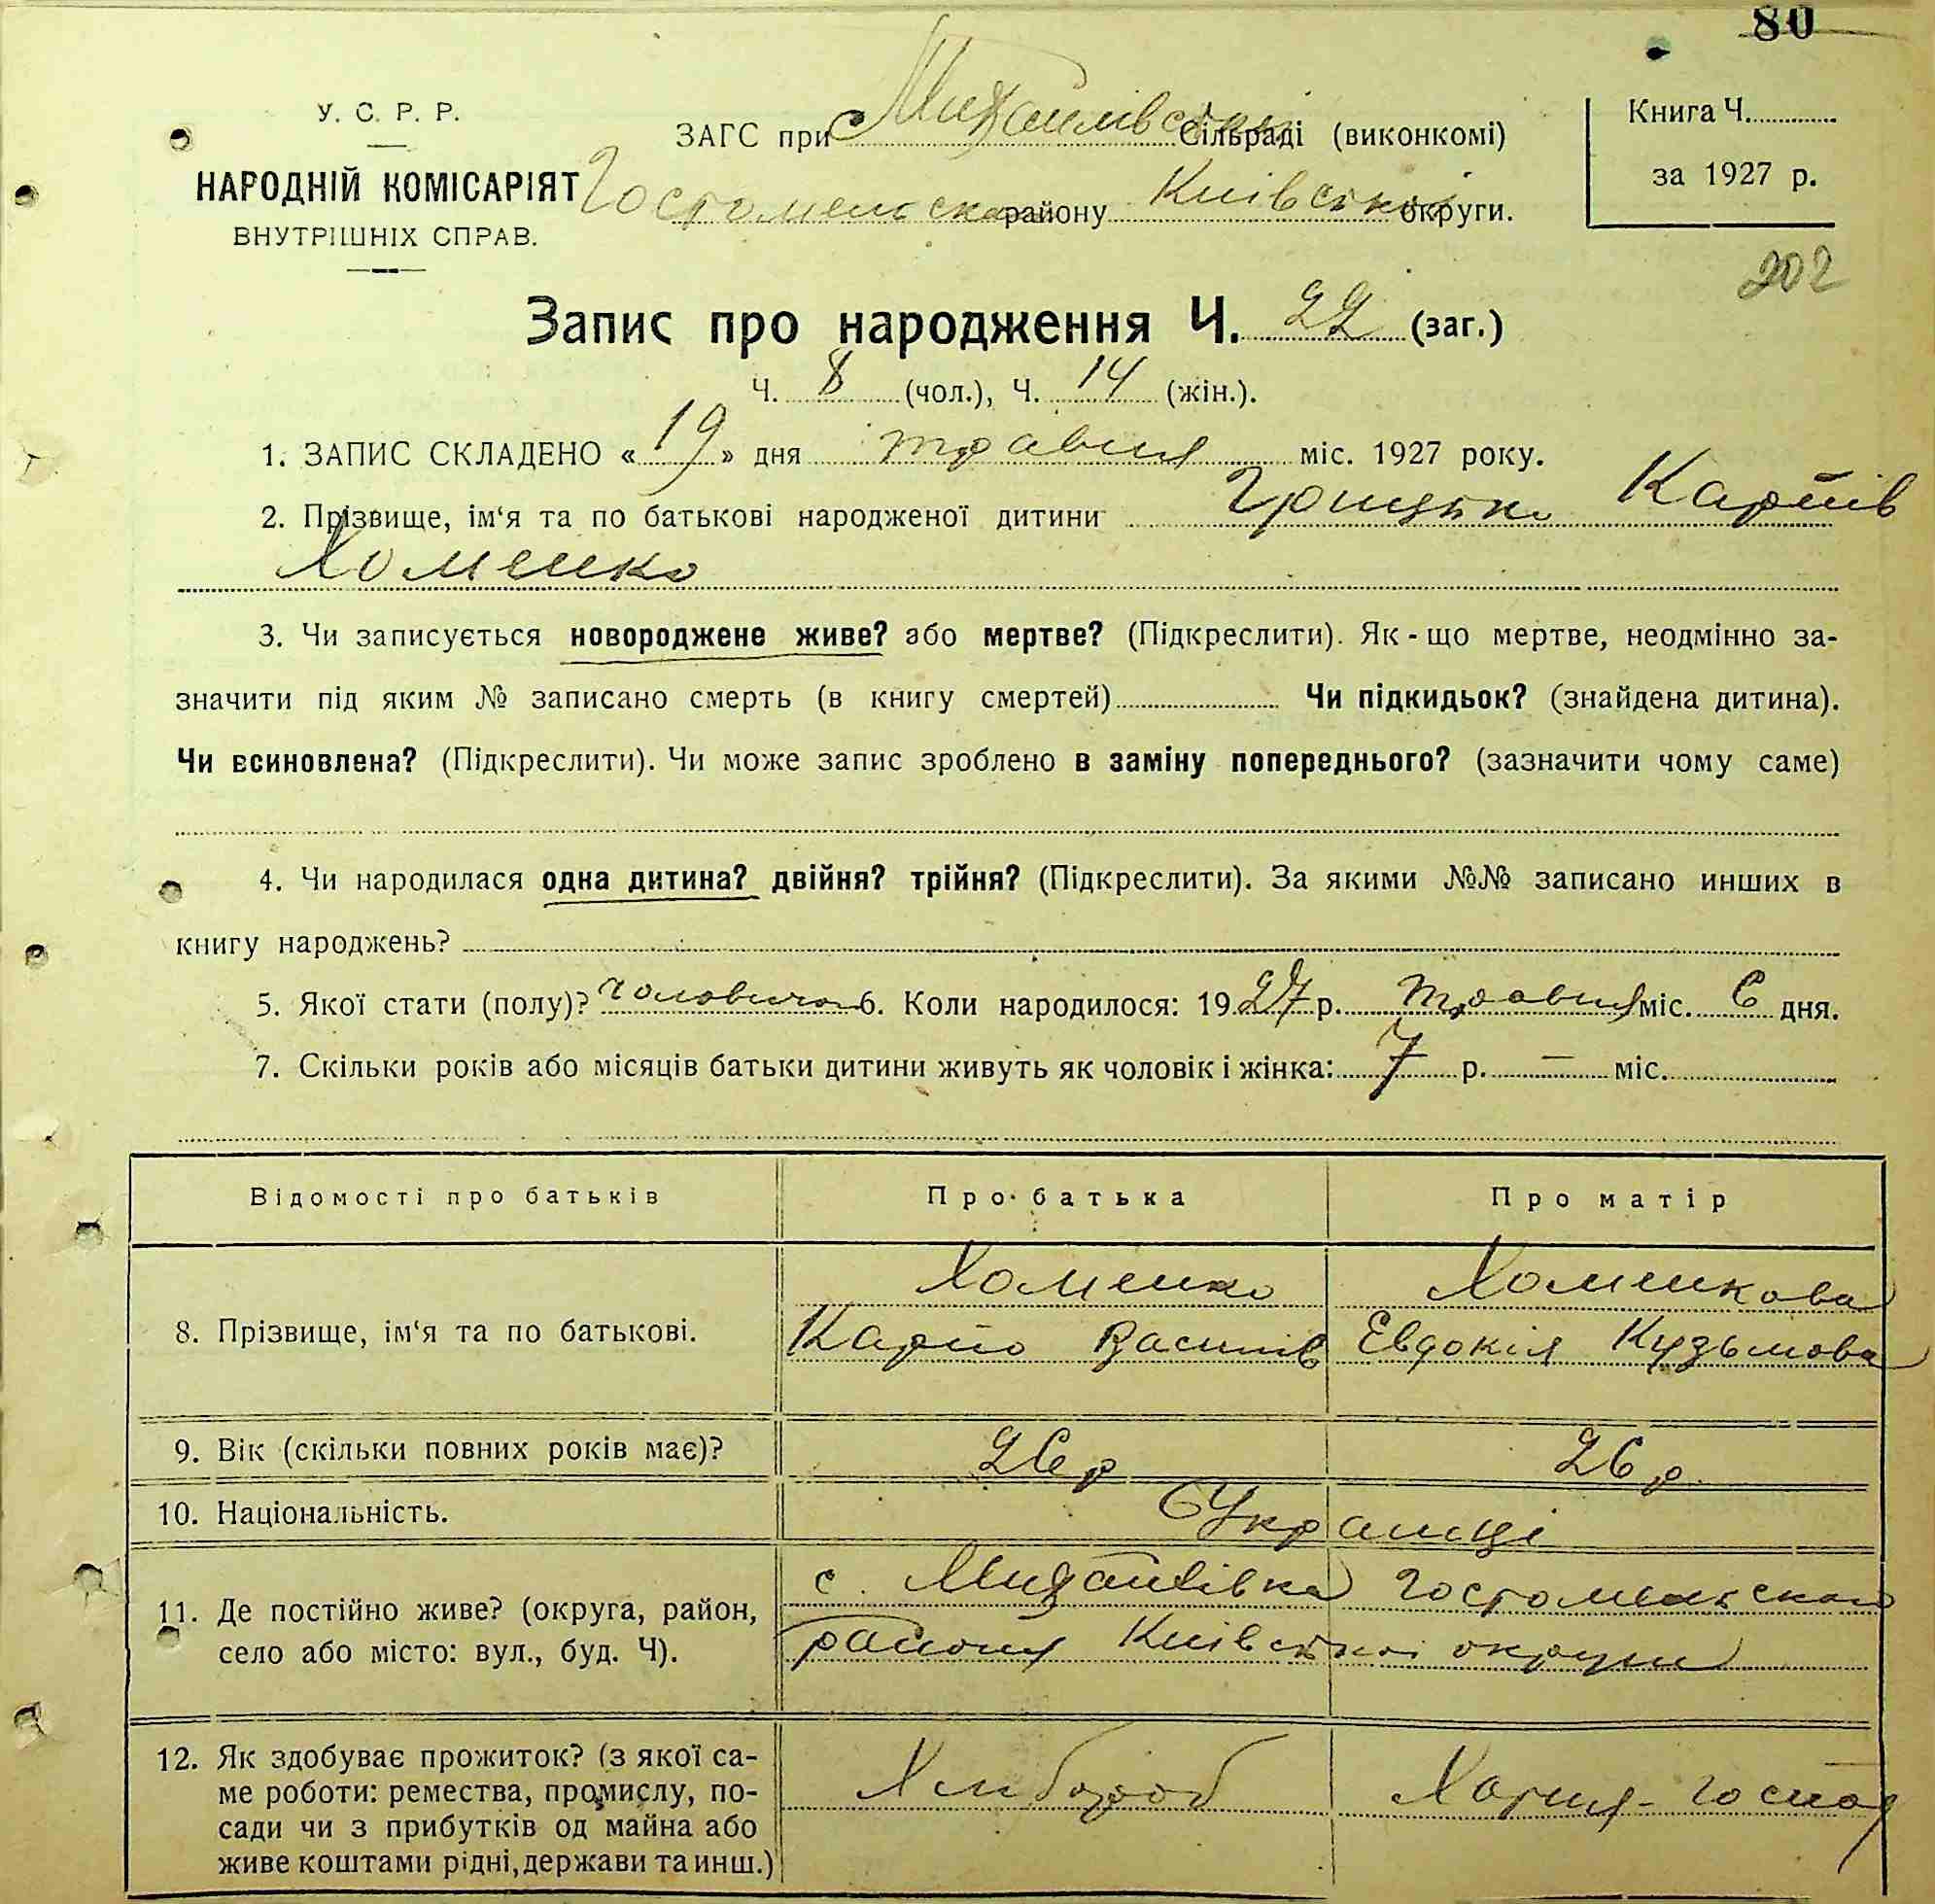 80
У. С. Р. Р.
НАРОДНІЙ КОМІСАРІЯТ
ВНУТРІШНІХ СПРАВ.
ЗАГС при Михайлівській Сільраді (виконкомі)
Гостомельськ району Київської округи.
Книга Ч.
за 1927 р.
202
Запис про народження Ч. 22 (заг.)
Ч. 8 (чол.), Ч. 14 (жін.).
1. ЗАПИС СКЛАДЕНО « 19 » дня травня міс. 1927 року.
2. Прізвище, ім'я та по батькові народженої дитини Грицько Карпів
Хоменко
3. Чи записується новороджене живе? або мертве? (Підкреслити). Як-що мертве, неодмінно за-
значити під яким № записано смерть (в книгу смертей) Чи підкидьок? (знайдена дитина).
Чи всиновлена? (Підкреслити). Чи може запис зроблено в заміну попереднього? (зазначити чому саме)
4. Чи народилася одна дитина? двійня? трійня? (Підкреслити). За якими №№ записано инших в
книгу народжень?
5. Якої стати (полу)? чоловічої 6. Коли народилося: 1927 р. травня міс. 6 дня.
7. Скільки років або місяців батьки дитини живуть як чоловік і жінка: 7 р. — міс.
Відомості про батьків Про батька Про матір
8. Прізвище, ім'я та по батькові.
Хоменко Хоменкова
Карпо Василів Евдокія Кузьмова
9. Вік (скільки повних років має)? 26 р 26 р.
10. Національність. Українці
11. Де постійно живе? (округа, район,
село або місто: вул., буд. Ч).
с. Михайлівка Гостомельського
району Київської округи
12. Як здобуває прожиток? (з якої са-
ме роботи: ремества, промислу, по-
сади чи з прибутків од майна або
живе коштами рідні, держави та инш.)
Хлібороб Хатня-господ